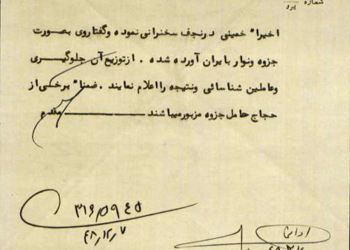 شماره
اخیرا" خمینی درنجف سخنرانی نموده وگفتاروی بصورت
جزوه ونوار بایران آورده شده . ازتوزیع آن جلوگیری
وعاملین شناسائی ونتیجه رااعلام نمایند . ضمنا" برخی از
حجاج حامل جزوه مزبورمیباشند
۳۱۶/۵۹۴۵
۴۸/۱۲/۷